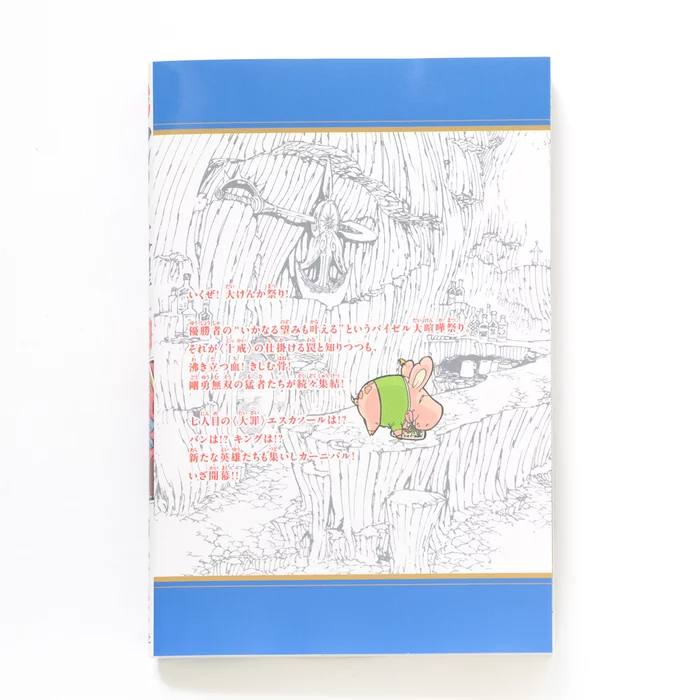 いくぜ! 大けんか祭り!
優勝者の“いかなる望みも叶える”というバイゼル大喧嘩祭り
それが〈十戒〉の仕掛ける罠と知りつつも、
沸き立つ血! きしむ骨!
剛勇無双の猛者たちが続々集結!
七人目の〈大罪〉エスカノールは!?
バンは!? キングは!?
新たな英雄たちも集いしカーニバル!
いざ開幕!!